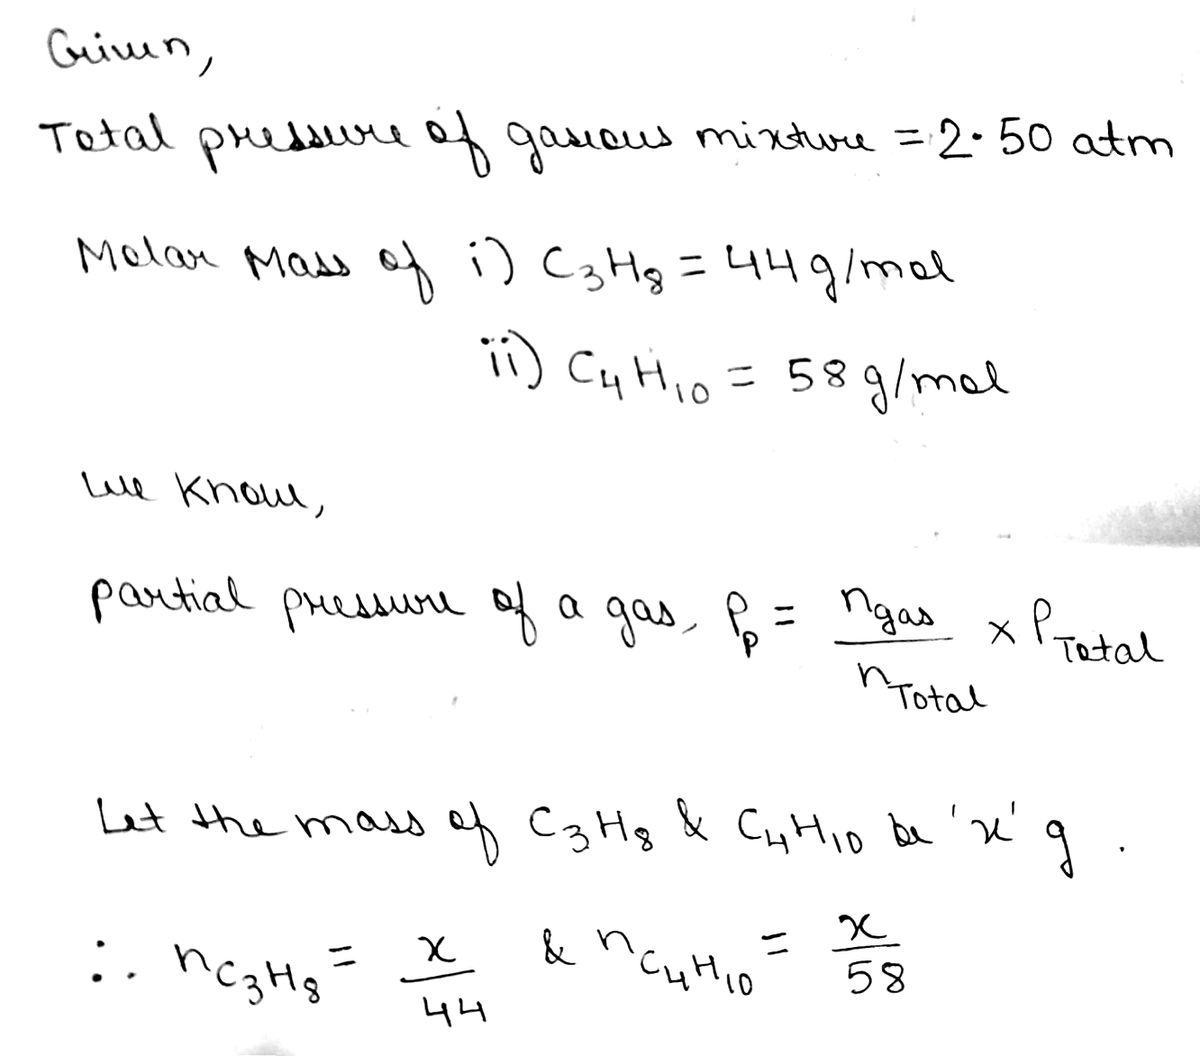 Given,
Total pressure of gasious mixture = 2.50 atm
Molar Mass of i) C₃H₈ = 44 g/mol
ii) C₄H₁₀ = 58 g/mol
We know,
partial pressure of a gas, Pₚ = n_gas / n_Total × P_Total
Let the mass of C₃H₈ & C₄H₁₀ be 'x' g .
∴ n_C₃H₈ = x / 44 & n_C₄H₁₀ = x / 58